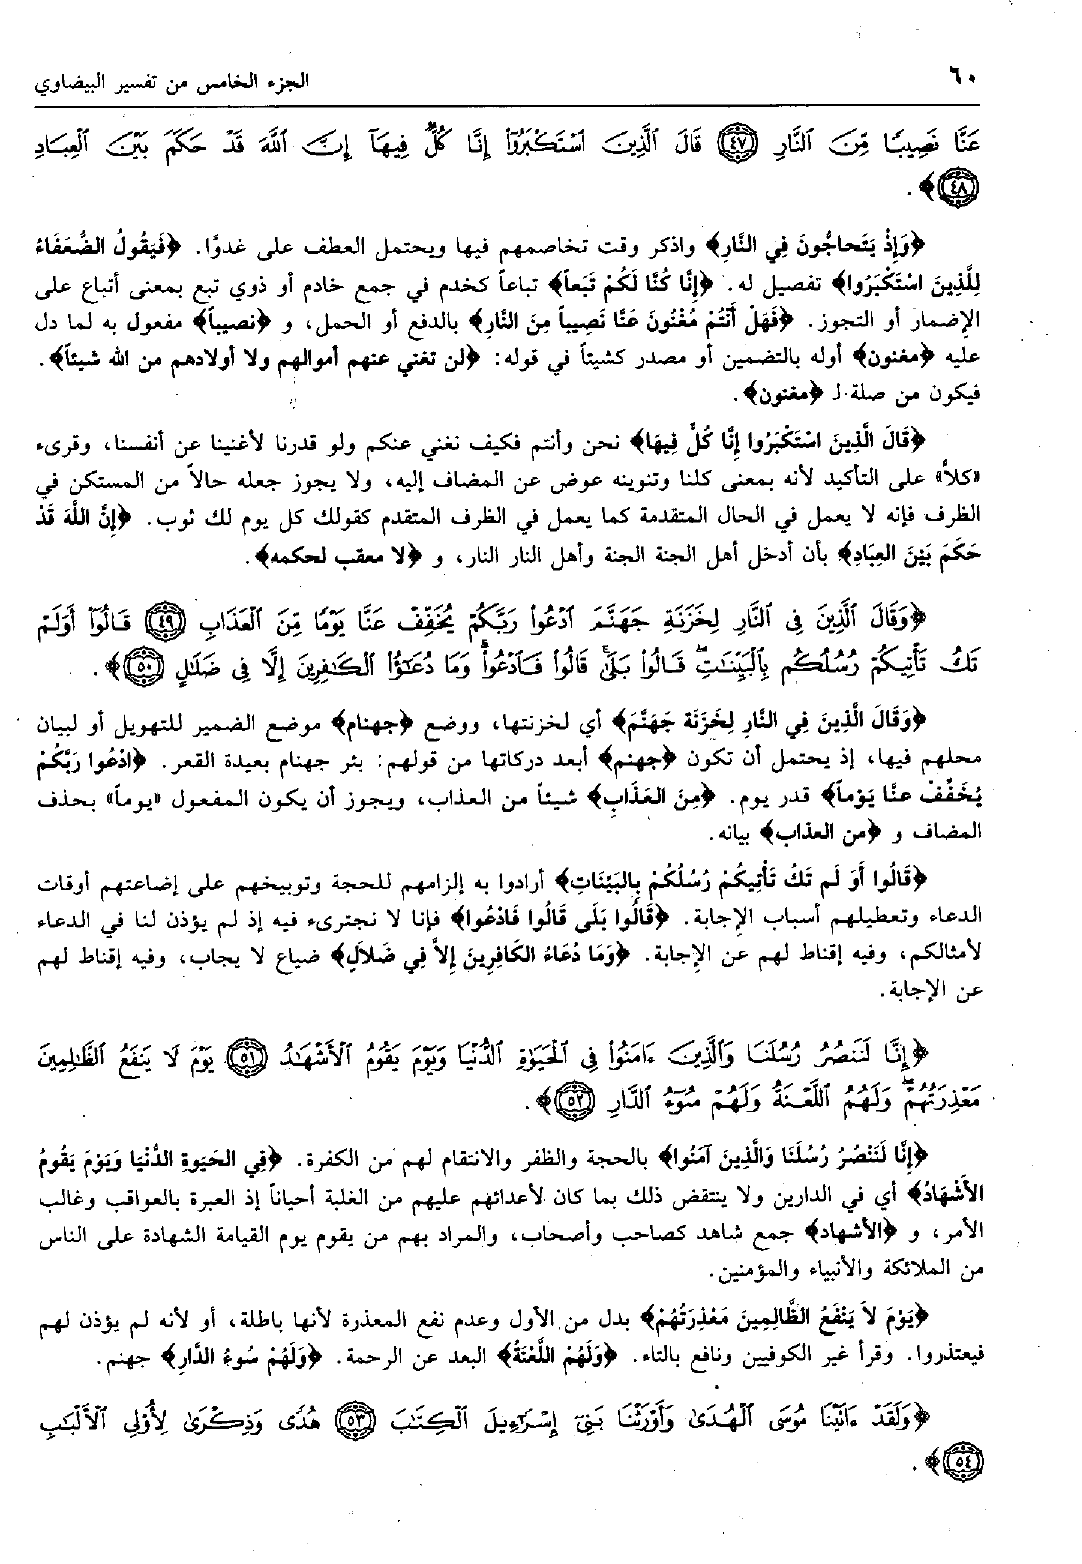 ٦٠
الجزء الخامس من تفسير البيضاوي
عَنَّا نَصِيبًا مِّنَ ٱلنَّارِ ﴿٤٧﴾ قَالَ ٱلَّذِينَ ٱسْتَكْبَرُوٓا۟ إِنَّا كُلٌّ فِيهَآ إِنَّ ٱللَّهَ قَدْ حَكَمَ بَيْنَ ٱلْعِبَادِ
﴿٤٨﴾﴾.
﴿وَإِذْ يَتَحاجُّونَ فِي النَّارِ﴾ واذكر وقت تخاصمهم فيها ويحتمل العطف على غدوًّا. ﴿فَيَقُولُ الضُّعَفَاءُ
لِلَّذِينَ اسْتَكْبَرُوا﴾ تفصيل له. ﴿إِنَّا كُنَّا لَكُمْ تَبَعاً﴾ تباعاً كخدم في جمع خادم أو ذوي تبع بمعنى أتباع على
الإضمار أو التجوز. ﴿فَهَلْ أَنْتُمْ مُغْنُونَ عَنَّا نَصِيباً مِنَ النَّارِ﴾ بالدفع أو الحمل، و ﴿نصيباً﴾ مفعول به لما دل
عليه ﴿مغنون﴾ أوله بالتضمين أو مصدر كشيئاً في قوله: ﴿لن تغني عنهم أموالهم ولا أولادهم من الله شيئاً﴾.
فيكون من صلة لـ ﴿مغنون﴾.
﴿قَالَ الَّذِينَ اسْتَكْبَرُوا إِنَّا كُلٌّ فِيهَا﴾ نحن وأنتم فكيف نغني عنكم ولو قدرنا لأغنينا عن أنفسنا، وقرىء
«كلاً» على التأكيد لأنه بمعنى كلنا وتنوينه عوض عن المضاف إليه، ولا يجوز جعله حالاً من المستكن في
الظرف فإنه لا يعمل في الحال المتقدمة كما يعمل في الظرف المتقدم كقولك كل يوم لك ثوب. ﴿إِنَّ اللَّهَ قَدْ
حَكَمَ بَيْنَ العِبَادِ﴾ بأن أدخل أهل الجنة الجنة وأهل النار النار، و ﴿لا معقب لحكمه﴾.
﴿وَقَالَ ٱلَّذِينَ فِى ٱلنَّارِ لِخَزَنَةِ جَهَنَّمَ ٱدْعُوا۟ رَبَّكُمْ يُخَفِّفْ عَنَّا يَوْمًا مِّنَ ٱلْعَذَابِ ﴿٤٩﴾ قَالُوٓا۟ أَوَلَمْ
تَكُ تَأْتِيكُمْ رُسُلُكُم بِٱلْبَيِّنَٰتِ ۖ قَالُوا۟ بَلَىٰ ۚ قَالُوا۟ فَٱدْعُوا۟ ۗ وَمَا دُعَٰٓؤُا۟ ٱلْكَٰفِرِينَ إِلَّا فِى ضَلَٰلٍ ﴿٥٠﴾﴾.
﴿وَقَالَ الَّذِينَ فِي النَّارِ لِخَزَنَة جَهَنَّمَ﴾ أي لخزنتها، ووضع ﴿جهنام﴾ موضع الضمير للتهويل أو لبيان
محلهم فيها، إذ يحتمل أن تكون ﴿جهنم﴾ أبعد دركاتها من قولهم: بئر جهنام بعيدة القعر. ﴿ادْعُوا رَبَّكُمْ
يُخَفِّفْ عنَّا يَوْماً﴾ قدر يوم. ﴿مِنَ العَذَابِ﴾ شيئاً من العذاب، ويجوز أن يكون المفعول «يوماً» بحذف
المضاف و ﴿من العذاب﴾ بيانه.
﴿قَالُوا أَوَ لَم تَكُ تَأْتِيكُمْ رُسُلُكُمْ بِالبَيِّنَاتِ﴾ أرادوا به إلزامهم للحجة وتوبيخهم على إضاعتهم أوقات
الدعاء وتعطيلهم أسباب الإجابة. ﴿قَالُوا بَلَى قَالُوا فَادْعُوا﴾ فإنا لا نجترىء فيه إذ لم يؤذن لنا في الدعاء
لأمثالكم، وفيه إقناط لهم عن الإجابة. ﴿وَمَا دُعَاءُ الكَافِرِينَ إِلاَّ فِي ضَلاَلٍ﴾ ضياع لا يجاب، وفيه إقناط لهم
عن الإجابة.
﴿إِنَّا لَنَنصُرُ رُسُلَنَا وَٱلَّذِينَ ءَامَنُوا۟ فِى ٱلْحَيَوٰةِ ٱلدُّنْيَا وَيَوْمَ يَقُومُ ٱلْأَشْهَٰدُ ﴿٥١﴾ يَوْمَ لَا يَنفَعُ ٱلظَّٰلِمِينَ
مَعْذِرَتُهُمْ ۖ وَلَهُمُ ٱللَّعْنَةُ وَلَهُمْ سُوٓءُ ٱلدَّارِ ﴿٥٢﴾﴾.
﴿إِنَّا لَنَنْصُرُ رُسُلَنَا وَالَّذِينَ آمَنُوا﴾ بالحجة والظفر والانتقام لهم من الكفرة. ﴿فِي الحَيَوةِ الدُّنْيَا وَيَوْمَ يَقُومُ
الأَشْهَادُ﴾ أي في الدارين ولا ينتقض ذلك بما كان لأعدائهم عليهم من الغلبة أحياناً إذ العبرة بالعواقب وغالب
الأمر، و ﴿الأشهاد﴾ جمع شاهد كصاحب وأصحاب، والمراد بهم من يقوم يوم القيامة الشهادة على الناس
من الملائكة والأنبياء والمؤمنين.
﴿يَوْمَ لاَ يَنْفَعُ الظَّالِمِينَ مَعْذِرَتُهُمْ﴾ بدل من الأول وعدم نفع المعذرة لأنها باطلة، أو لأنه لم يؤذن لهم
فيعتذروا. وقرأ غير الكوفيين ونافع بالتاء. ﴿وَلَهُمْ اللَّعْنَةُ﴾ البعد عن الرحمة. ﴿وَلَهُمْ سُوءُ الدَّارِ﴾ جهنم.
﴿وَلَقَدْ ءَاتَيْنَا مُوسَى ٱلْهُدَىٰ وَأَوْرَثْنَا بَنِىٓ إِسْرَٰٓءِيلَ ٱلْكِتَٰبَ ﴿٥٣﴾ هُدًى وَذِكْرَىٰ لِأُو۟لِى ٱلْأَلْبَٰبِ
﴿٥٤﴾﴾.